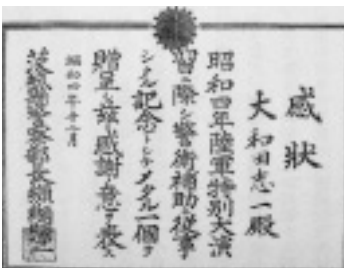 感狀
大和田志一殿
昭和四年陸軍特別大演
習ニ際シ警衛補助ニ從事
シタル記念トシテメタル一個ヲ
贈呈シ茲ニ感謝ノ意ヲ表ス
昭和四年十二月
茨城縣警察部長